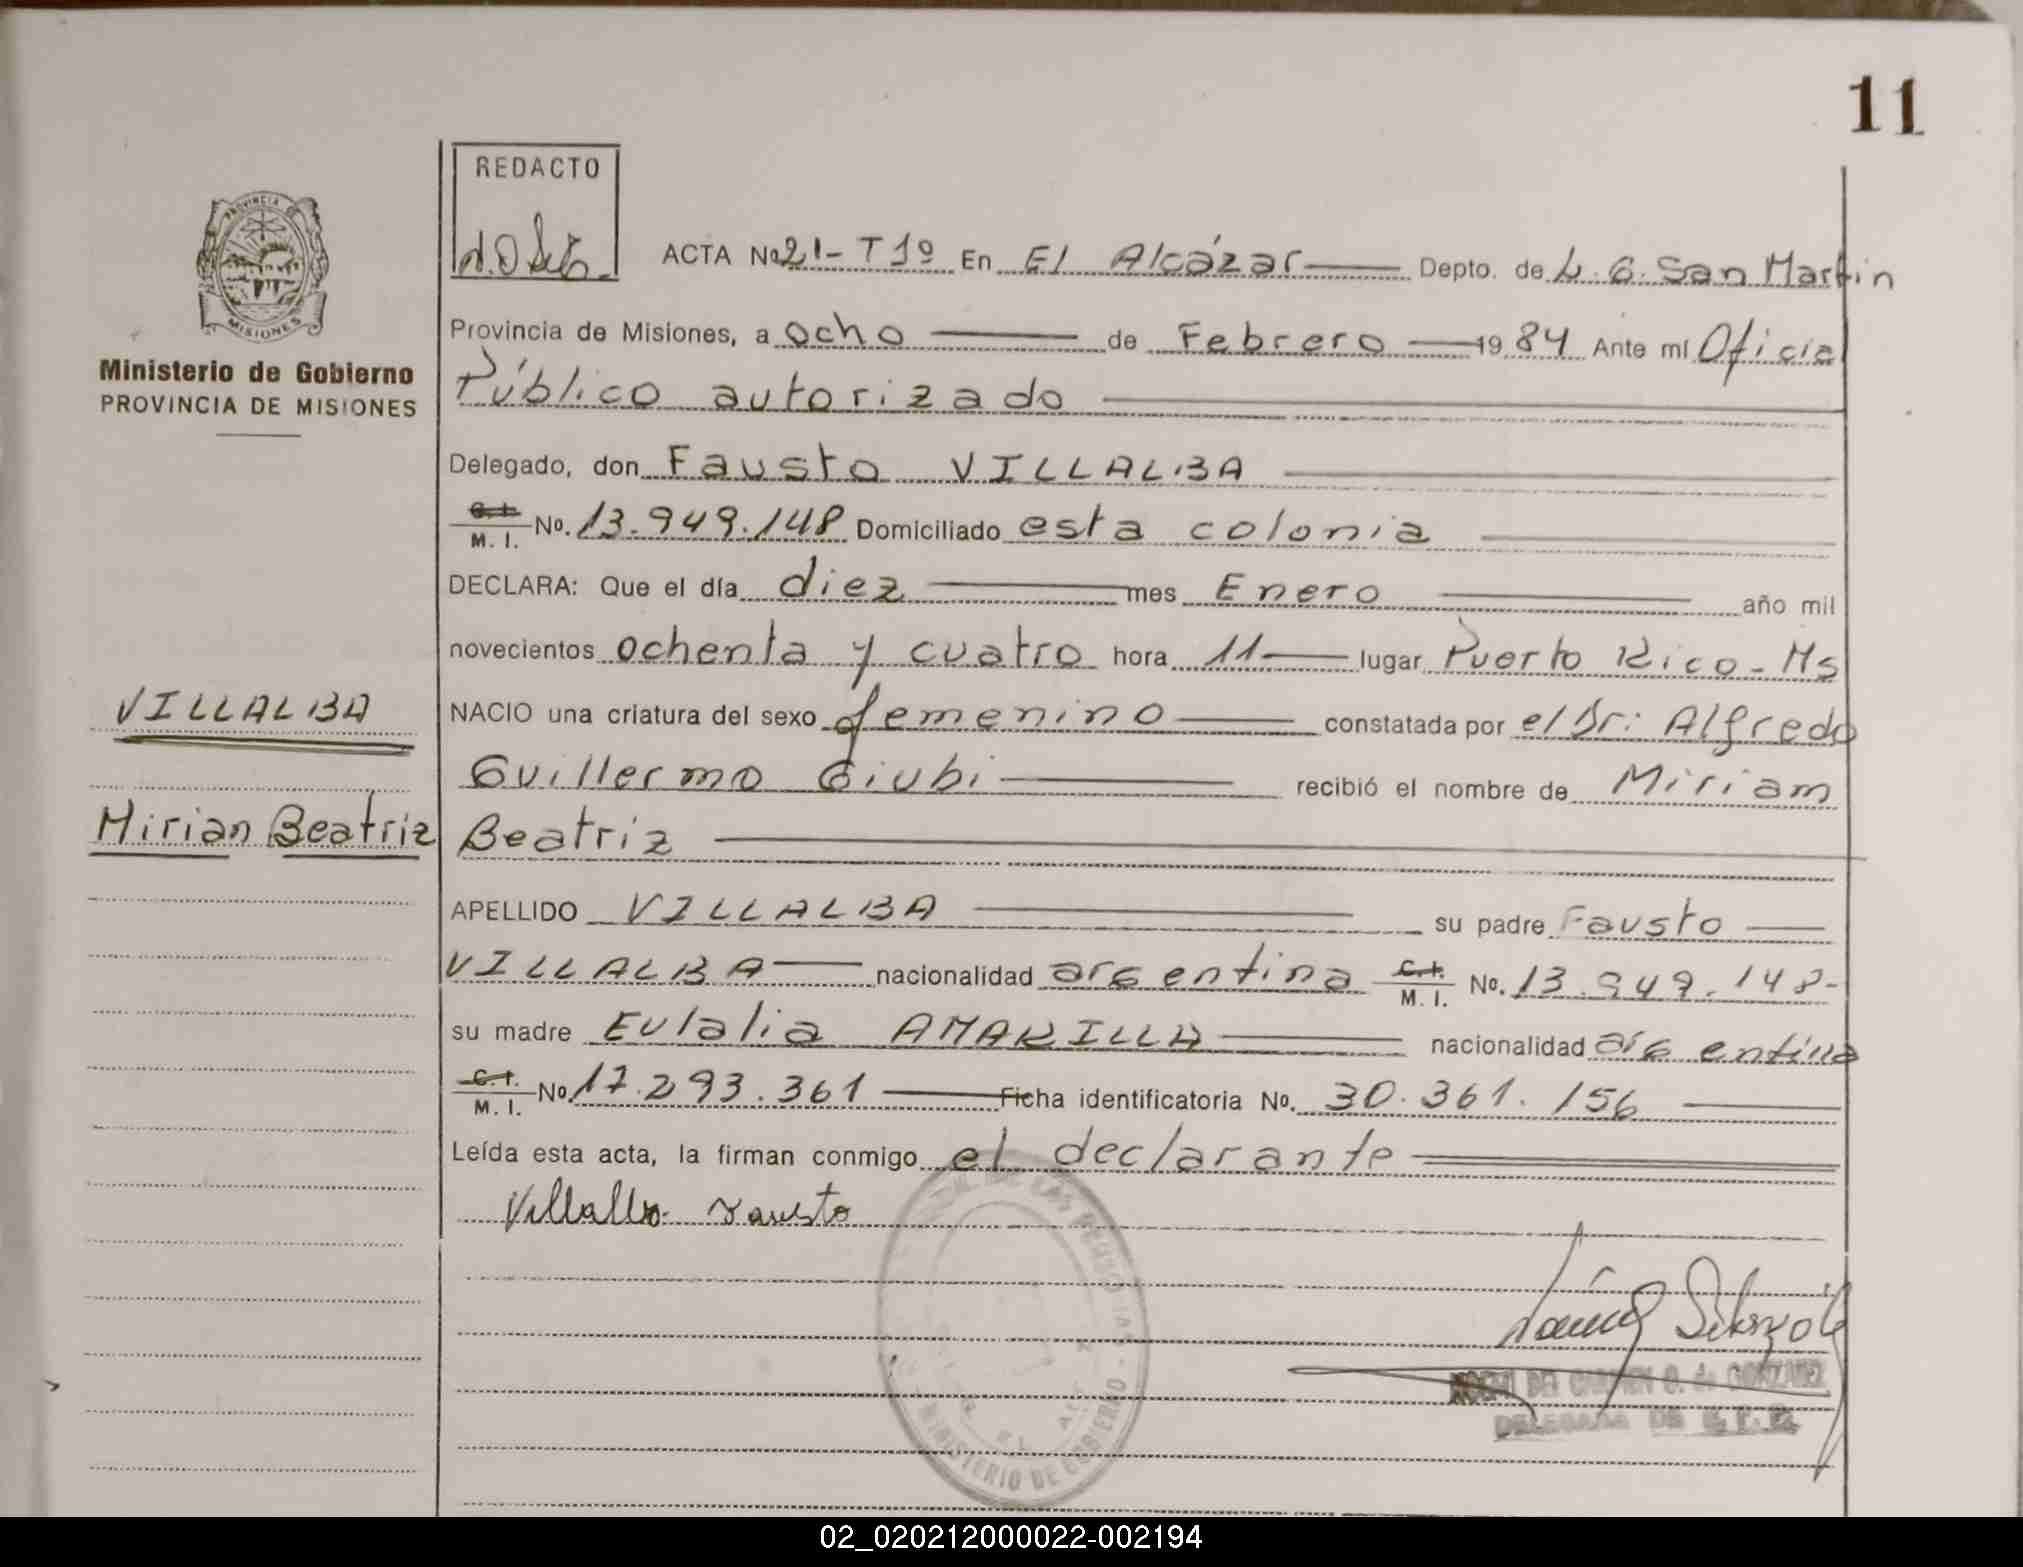 11
REDACTO
PROVINCIA DE
MISIONES
Ministerio de Gobierno
PROVINCIA DE MISIONES
ACTA No 21-T1º En El Alcázar Depto. de L.G. San Martin
Provincia de Misiones, a ocho de Febrero 1984 Ante mí Oficial
Público autorizado
Delegado, don Fausto VILLALBA
C.I. M.I. No. 13.949.148 Domiciliado esta colonia
DECLARA: Que el día diez mes Enero año mil
novecientos ochenta y cuatro hora 11 lugar Puerto Rico - Ms
VILLALBA
NACIO una criatura del sexo femenino constatada por el Dr: Alfredo
Guillermo Giubi recibió el nombre de Miriam
Mirian Beatriz
Beatriz
APELLIDO VILLALBA su padre Fausto
VILLALBA nacionalidad argentina C.I. M.I. No. 13.949.148-
su madre Eulalia AMARILLA nacionalidad argentina
C.I. M.I. No 17.293.361 Ficha identificatoria No. 30.361.156
Leída esta acta, la firman conmigo el declarante
Villalba Fausto
DE LAS PERSONAS
MINISTERIO DE GOBIERNO
DEL CARMEN O. de GONZALEZ
DELEGADA DE
02_020212000022-002194